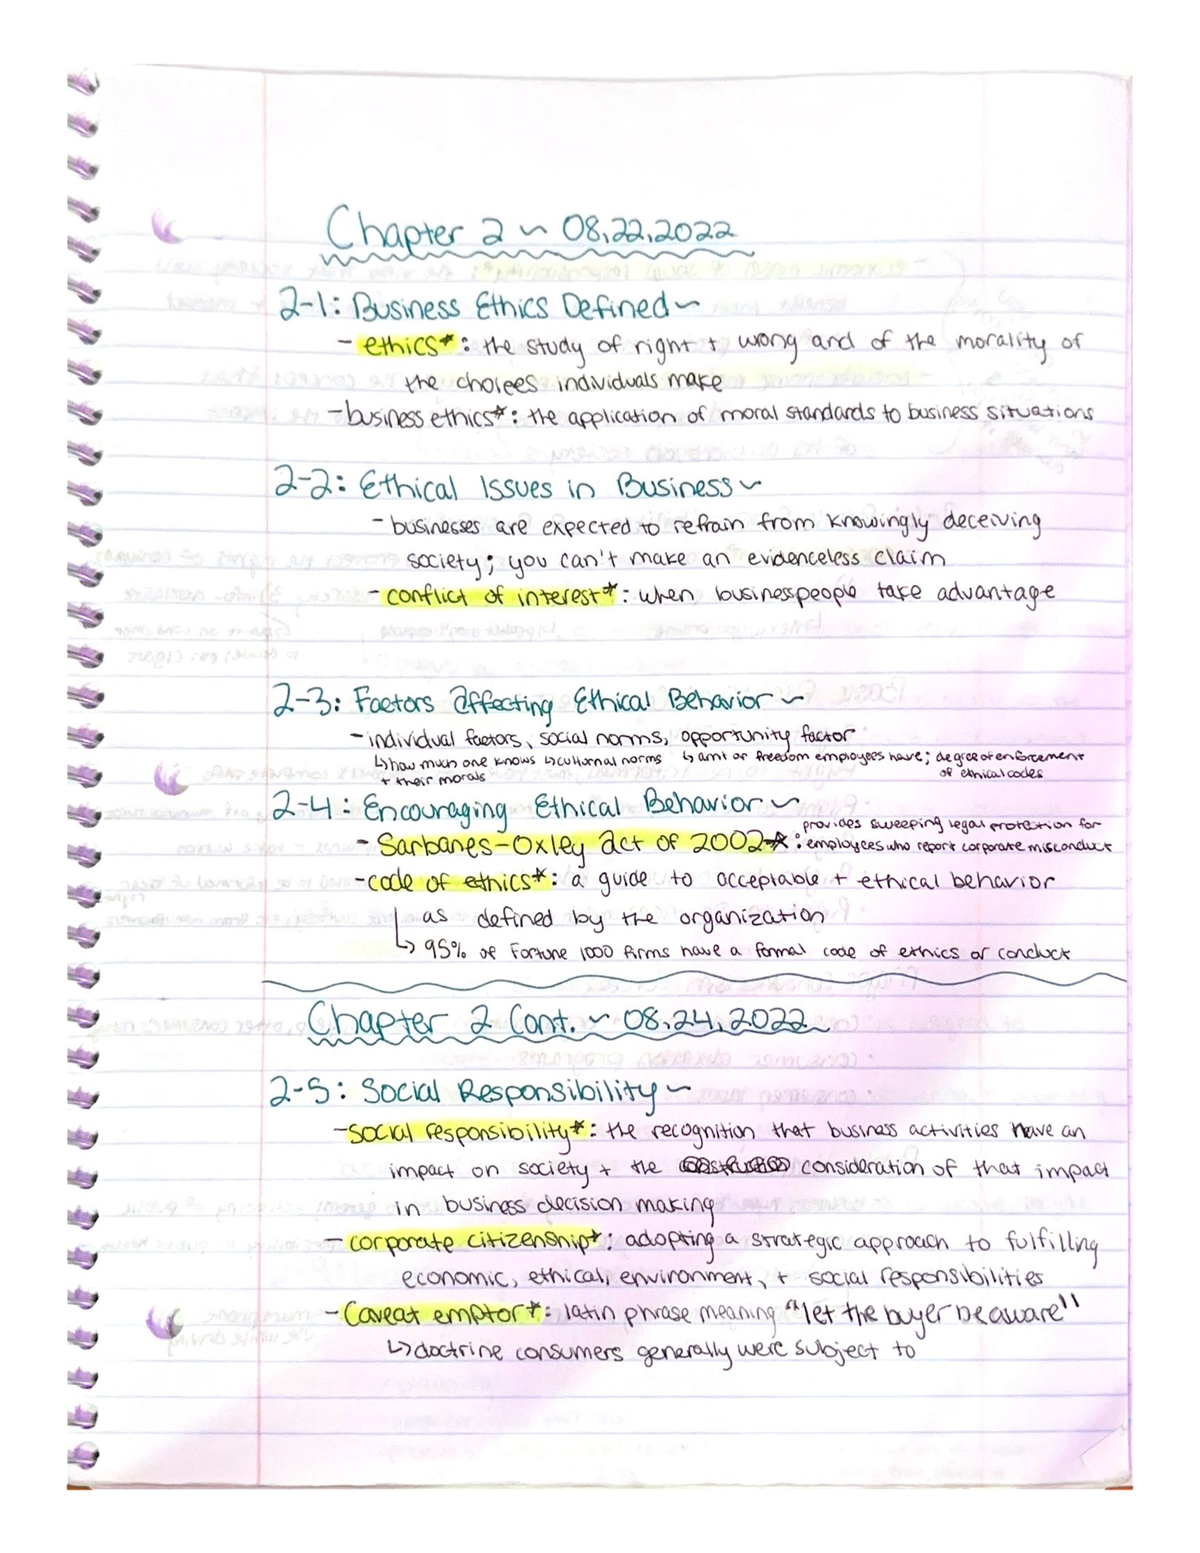 Chapter 2 ~ 08.22.2022
2-1: Business Ethics Defined ~
- ethics*: the study of right + wrong and of the morality of
the choices individuals make
- business ethics*: the application of moral standards to business situations
2-2: Ethical Issues in Business ~
- businesses are expected to refrain from knowingly deceiving
society; you can't make an evidenceless claim
- conflict of interest*: when businesspeople take advantage
2-3: Factors Affecting Ethical Behavior ~
- individual factors, social norms, opportunity factor
↳ how much one knows ↳ cultural norms ↳ amt of freedom employees have; degree of enforcement
+ their morals of ethical codes
2-4: Encouraging Ethical Behavior ~
provides sweeping legal protection for
- Sarbanes-Oxley Act of 2002*: employees who report corporate misconduct
- code of ethics*: a guide to acceptable + ethical behavior
as defined by the organization
↳ 95% of Fortune 1000 firms have a formal code of ethics or conduct
Chapter 2 Cont. ~ 08.24.2022
2-5: Social Responsibility ~
- social responsibility*: the recognition that business activities have an
impact on society + the consideration of that impact
in business decision making
- corporate citizenship*: adopting a strategic approach to fulfilling
economic, ethical, environment, + social responsibilities
- Caveat emptor*: latin phrase meaning "let the buyer be aware"
↳ doctrine consumers generally were subject to